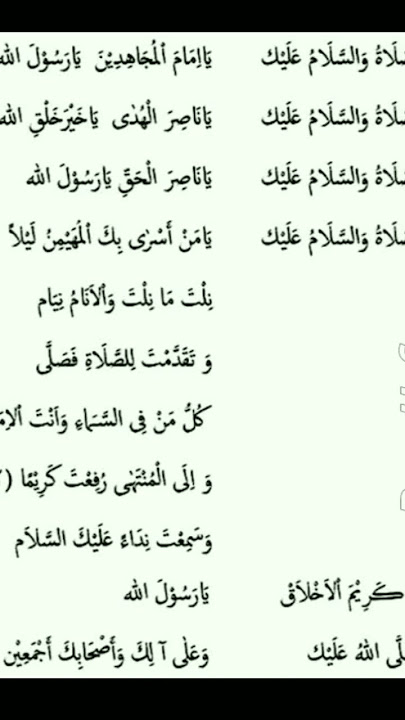 وَالسَّلَامُ عَلَيْك يَااِمَامَ الْمُجَاهِدِيْنَ يَارَسُوْلَ الله
وَالسَّلَامُ عَلَيْك يَانَاصِرَ الْهُدٰى يَاخَيْرَخَلْقِ الله
وَالسَّلَامُ عَلَيْك يَانَاصِرَ الْحَقِّ يَارَسُوْلَ الله
وَالسَّلَامُ عَلَيْك يَامَنْ أَسْرٰى بِكَ الْمُهَيْمِنُ لَيْلاً
نِلْتَ مَا نِلْتَ وَالْاَنَامُ نِيَام
وَ تَقَدَّمْتَ لِلصَّلَاةِ فَصَلَّى
كُلُّ مَنْ فِى السَّمَاءِ وَاَنْتَ
وَ اِلَى الْمُنْتَهٰى رُفِعْتَ كَرِيْمًا (
وَسَمِعْتَ نِدَاءً عَلَيْكَ السَّلاَم
كَرِيْمَ الْاَخْلَاقْ يَارَسُوْلَ الله
اللهُ عَلَيْك وَعَلٰى آ لِكَ وَأَصْحَابِكَ أَجْمَعِيْن